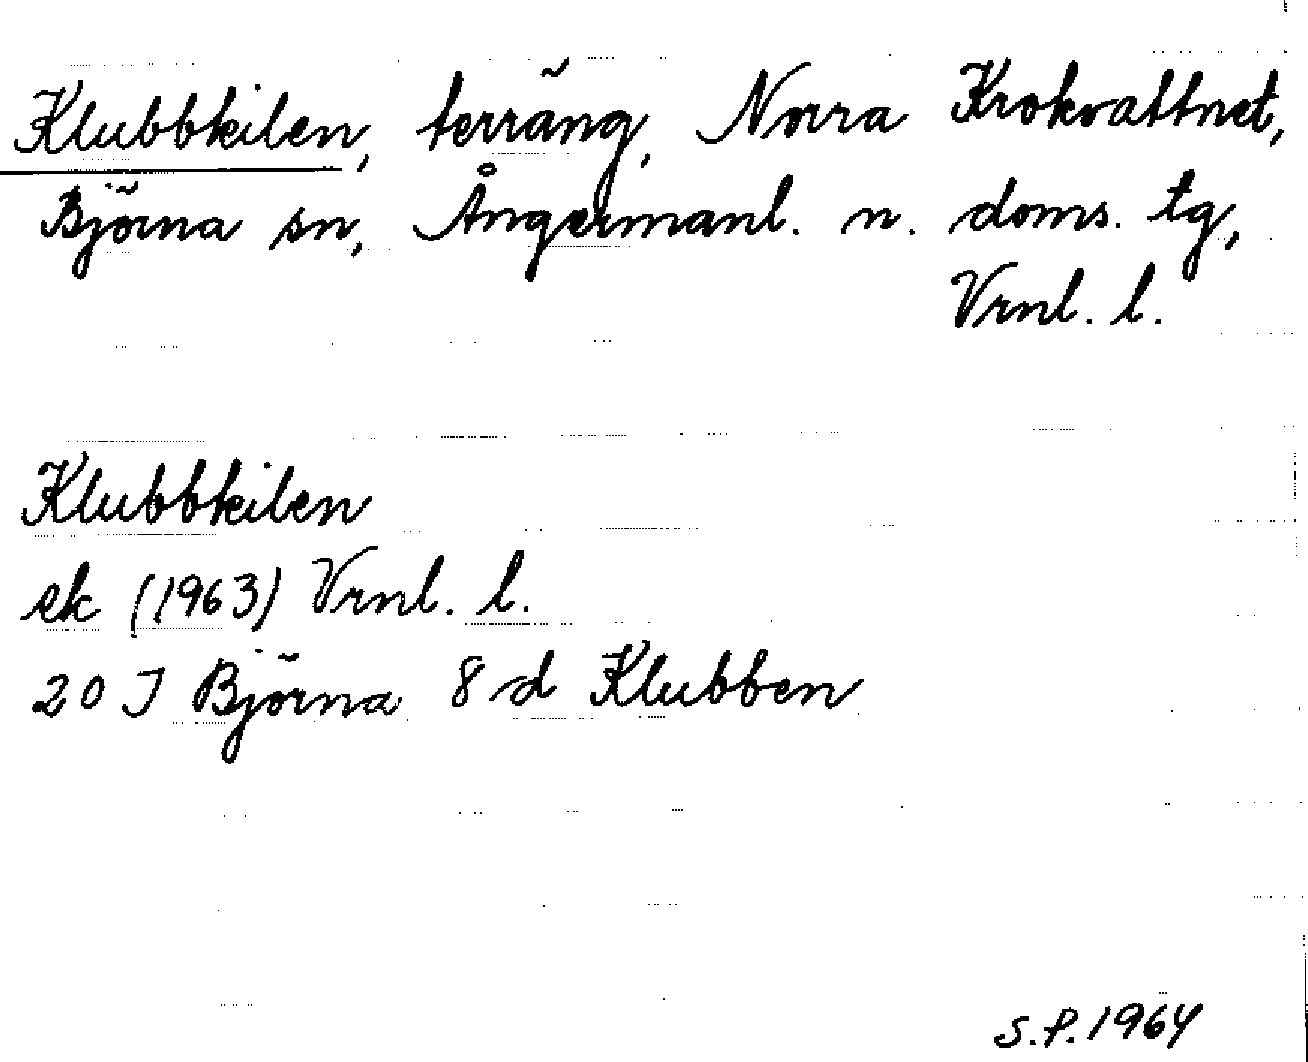 Klubbkilen, terräng, Norra Krokvattnet,
Björna sn, Ångermanl. n. doms. tg,
Vrnl. l.
Klubbkilen
ek (1963) Vrnl. l.
20 J Björna 8 d Klubben
S.P. 1964